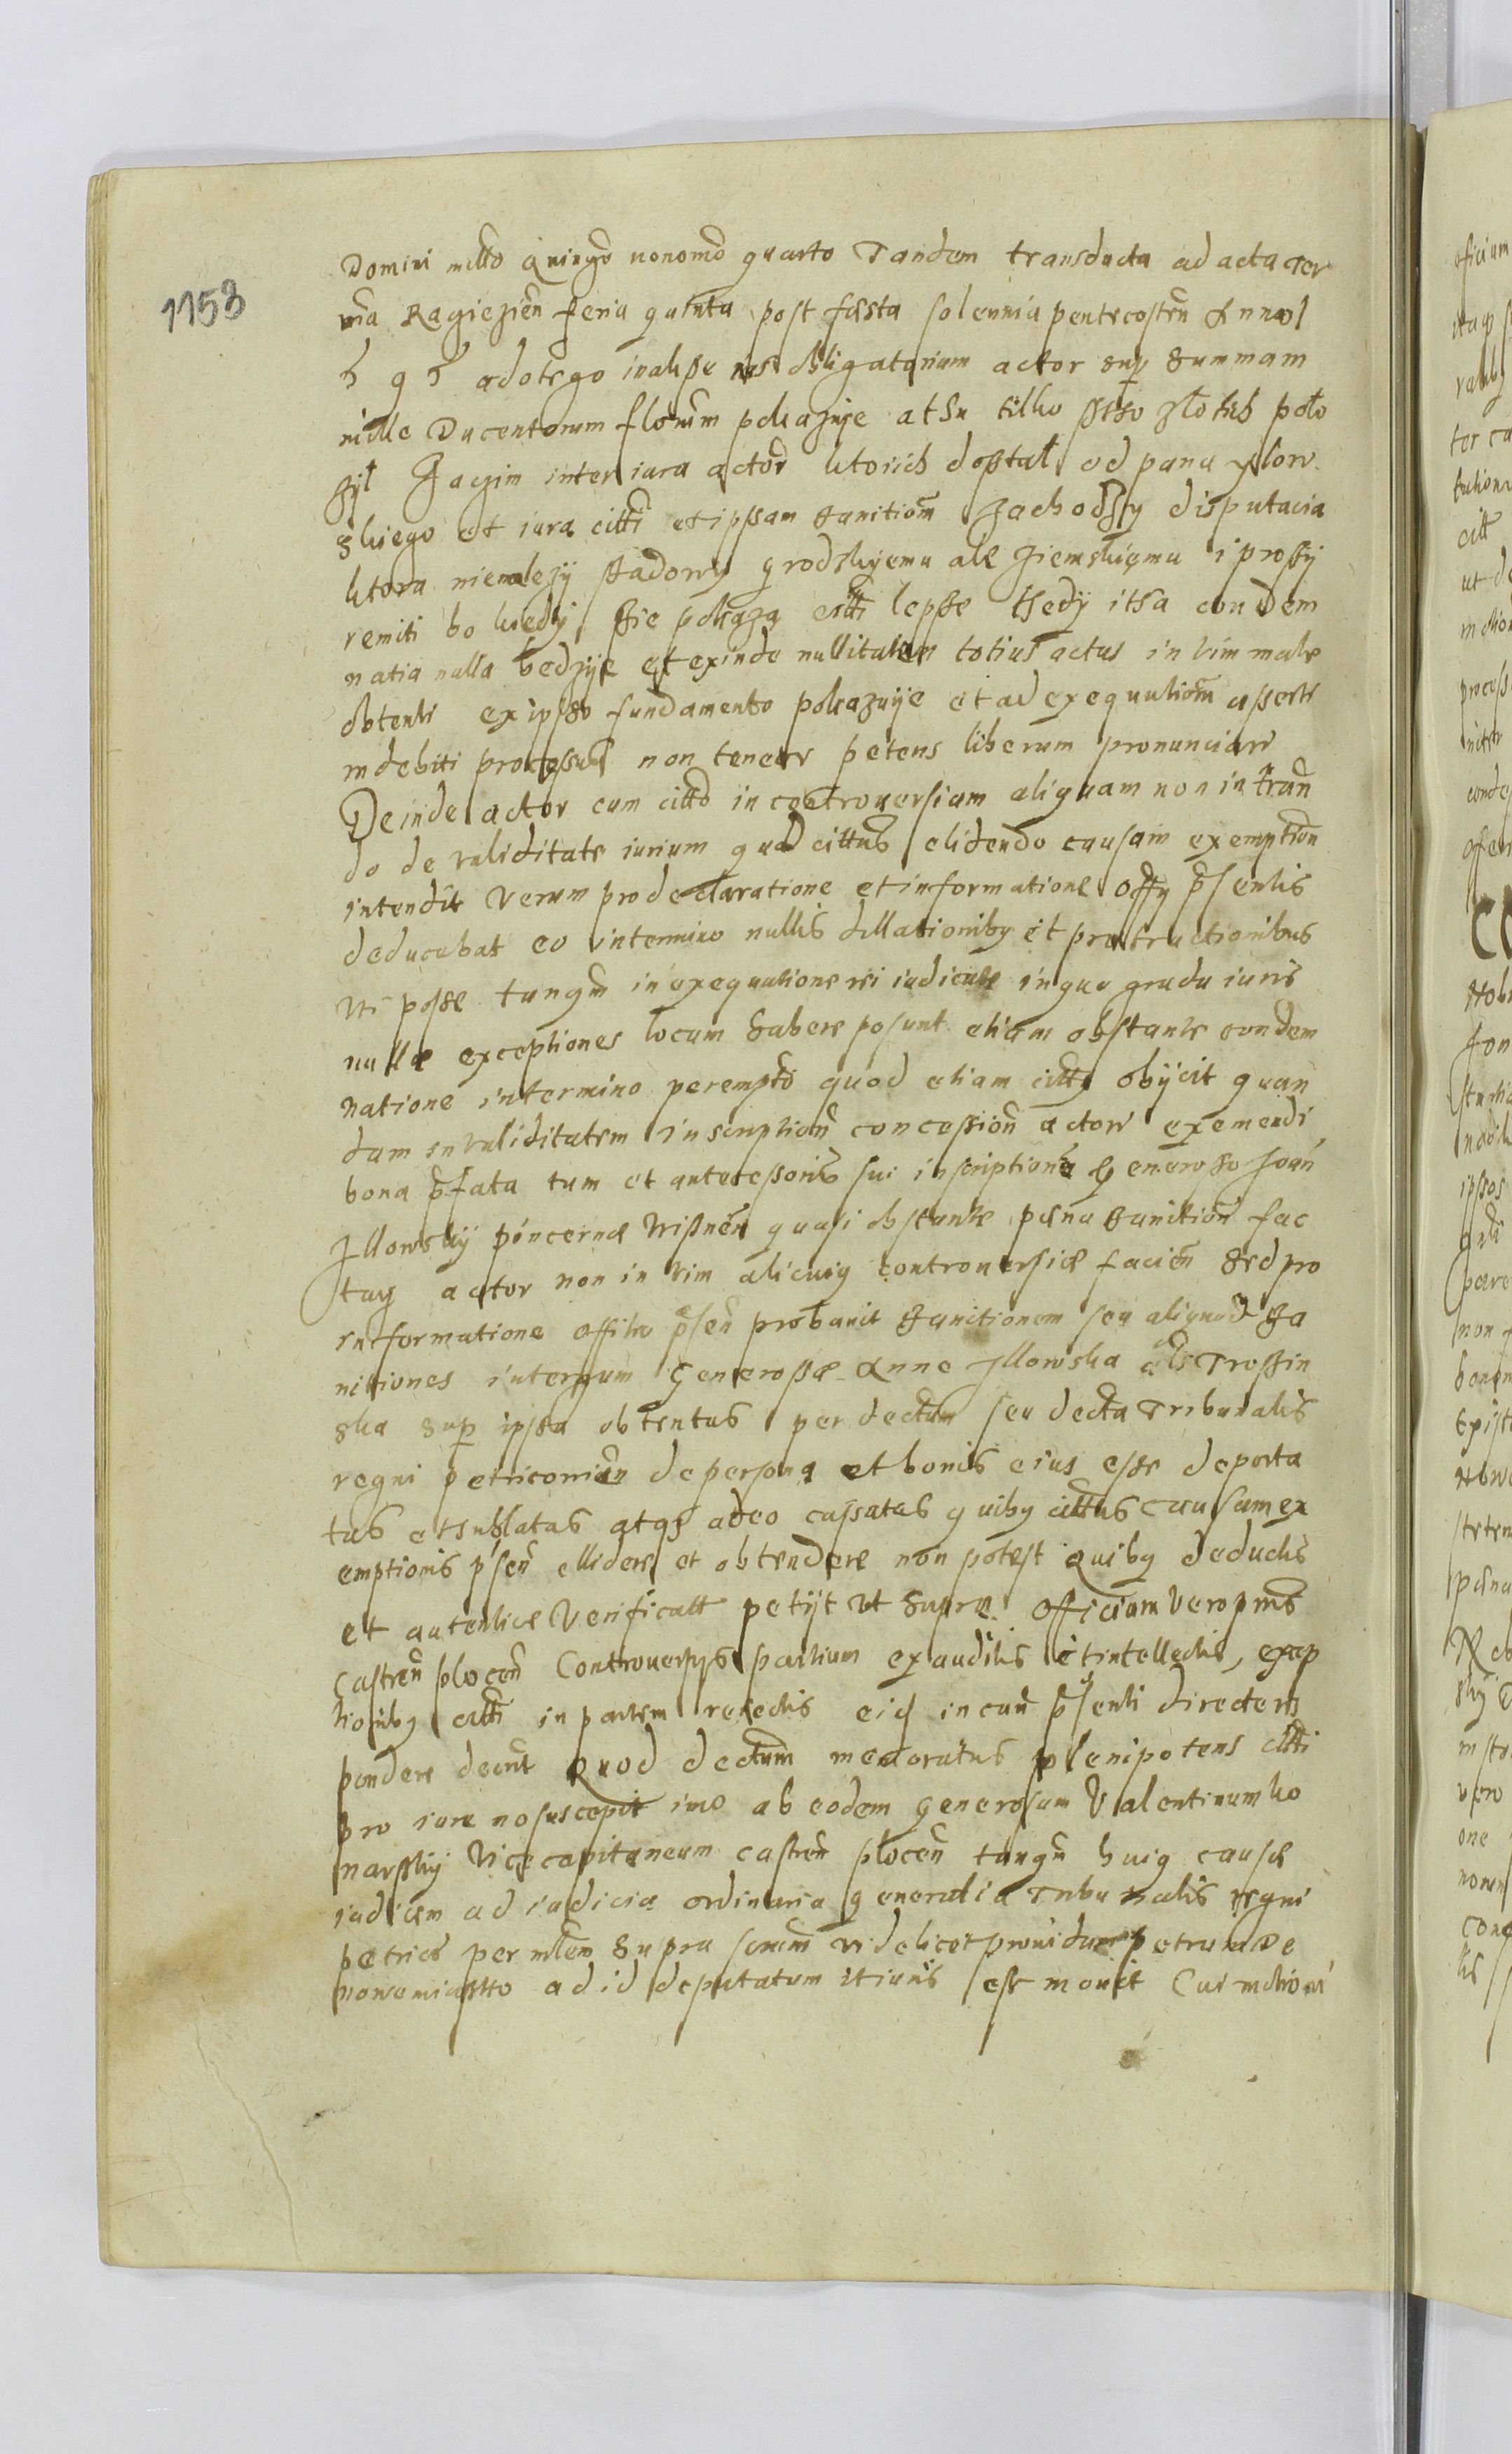 1153
Domini millo quingo nonomo quarto Tandem transducta ad acta Ter
Ragiezien feria quinta post festa solennia pentecosten
adotego obligatorium actor sup summam
mille Ducentorum florum pokazuje a thu tilko sto zlotich polo
zyl Zaczim inter iura actor ktorich dostal od pana Jlow
skiego et iura citti et ipssam banitiom zachodzy disputacia
ktora nienalezy sadowy grodzkyemu ale ziemskiemu i prossy
remiti bo kiedy sie pokaza citti lepsse thedy itha condem
natia nulla bedzye et exinde nullitatem totius actus in vim male
obtenti ex ipsso fundamento pokazuije et ad exequutiom asserti
indebiti processus non teneri petens liberum pronunciari
Deinde actor cum citto in controuersiam aliquam non intran
do de validitate iurium quod cittus elidendo causam exemption
intendit verum pro declaratione et informatione offy psentis
deducebat eo in termino nullis dillationiby et protractionibus
vti posse tanqm in exequutione rei iudicate in quo gradu iuris
nullæ exceptiones locum habere possunt etiam obstante condem
natione in termino perempto quod etiam citty obijcit quan
dam inualiditatem inscription concession actori exemendi
bona pfata tum et antecessoris sui inscriptione Generosso Joan
Jllowskij pincernæ Wissnen quasi obstante pena banition fac
tay actor non in vim alicuiq controuersiæ facien sed pro
informatione offitio psen probauit banitionem seu aliquod ba
nitiones intergum Generossæ Anne Jllowska als Trossin
ska sup ipssa obtentas per dectum seu decta Tribunalis
regni petricouien de persona et bonis eius esse deporta
tas et sublatas atqs adeo cassatas quiby cittus causam ex
emptionis psen ellidere et obtendere non potest Quiby deductis
et autentice Verificatt petijt vt supra. Officium vero pns
Castren plocen Controuersys partium exauditis et intellectis, excep
tioniby citti in partem reiectis eid in cau psenti directe res
pondere decrit Quod dectum memoratus plenipotens citti
pro iure no suscepit imo ab eodem generosum Valentinum ko
narsskij Vicecapitaneum castren plocen tanqn huiq causæ
iudicem ad iudicia ordinaria generalia Tribunalis regni
petrico per mlem supra scrium videlicet prouidum petrum de
nonomiastto ad id deputatum itiuris esse mouit Cui motioni